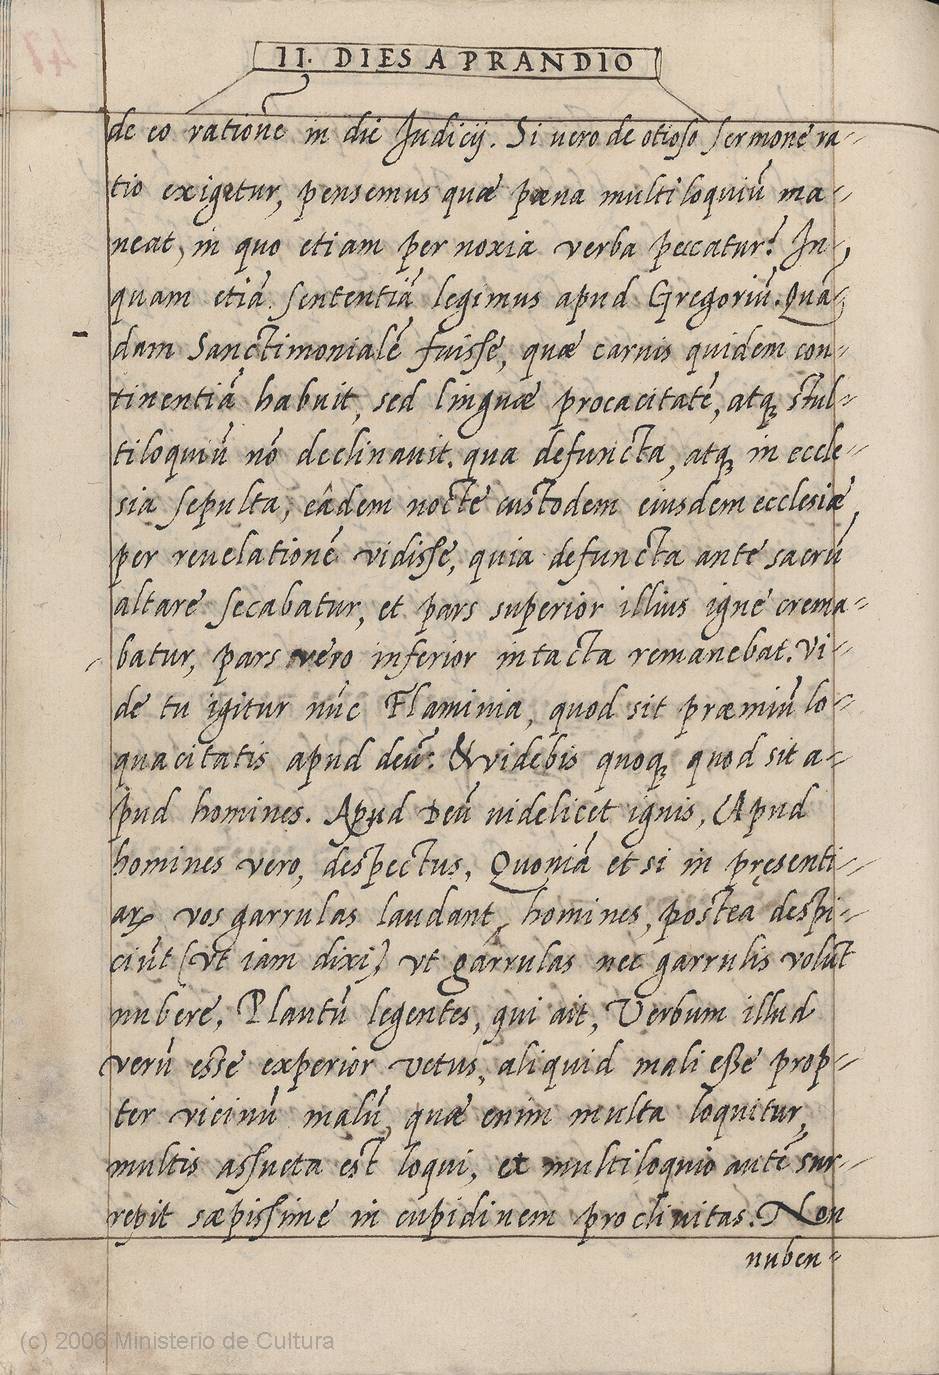 II. DIES A PRANDIO
de eo ratione in die Judicij. Si vero de otioso sermone ra-
tio exigetur, pensemus quæ pœna multiloquiũ ma-
neat, in quo etiam per noxia verba peccatur? In-
quam etiã sententiã legimus apud Gregoriũ. Quã-
dam Sanctimonialẽ fuisse, quæ carnis quidem con-
tinentiã habuit, sed linguæ procacitatẽ, atq; stul-
tiloquiũ nõ declinauit. qua defuncta, atq; in eccle-
sia sepulta, eâdem nocte custodem eiusdem ecclesiæ
per reuelationẽ vidisse, quia defuncta ante sacrũ
altare secabatur, et pars superior illius igne crema-
batur, pars vero inferior intacta remanebat. Vi-
de tu igitur nũc Flaminia, quod sit præmiũ lo-
quacitatis apud deũ: & videbis quoq; quod sit a-
pud homines. Apud Deũ uidelicet ignis, Apud
homines vero, despectus, Quoniã et si in pręsenti-
arꝝ vos garrulas laudant, homines, postea despi-
ciũt (vt iam dixi) vt garrulas nec garrulis volũt
nubere, Plautũ legentes, qui ait, Verbum illud
verũ esse experior vetus, aliquid mali esse prop-
ter vicinũ malũ, quæ enim multa loquitur,
multis assueta est loqui, et multiloquio autẽ sur-
repit sæpissime in cupidinem procliuitas. Non
nuben-
(c) 2006 Ministerio de Cultura